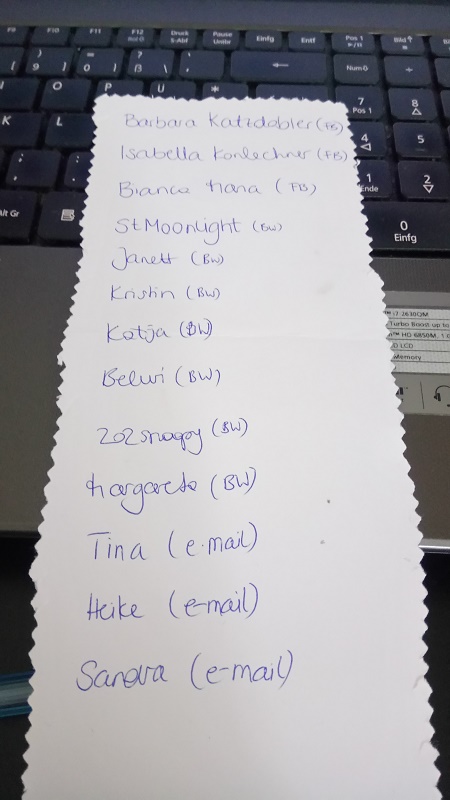 F9 F10 F11 F12 Druck S-Abf Pause Untbr Einfg Entf Pos 1 Bild
) 9 ] = 0 } ? ß \ Num
O P Ü * 7 Pos 1 8
K L 4 5
; : 1 Ende 2
Alt Gr 0 Einfg
Barbara Katzdobler (FB)
Isabella Konlechner (FB)
Bianca Maria (FB)
StMoonlight (BW)
Janett (BW)
Kristin (BW)
Katja (BW)
Belwi (BW)
202snoopy (BW)
Margareta (BW)
Tina (e-mail)
Heike (e-mail)
Sandra (e-mail)
i7 2630QM
Turbo Boost up to
HD 6850M, 1 G
D LCD
Memory